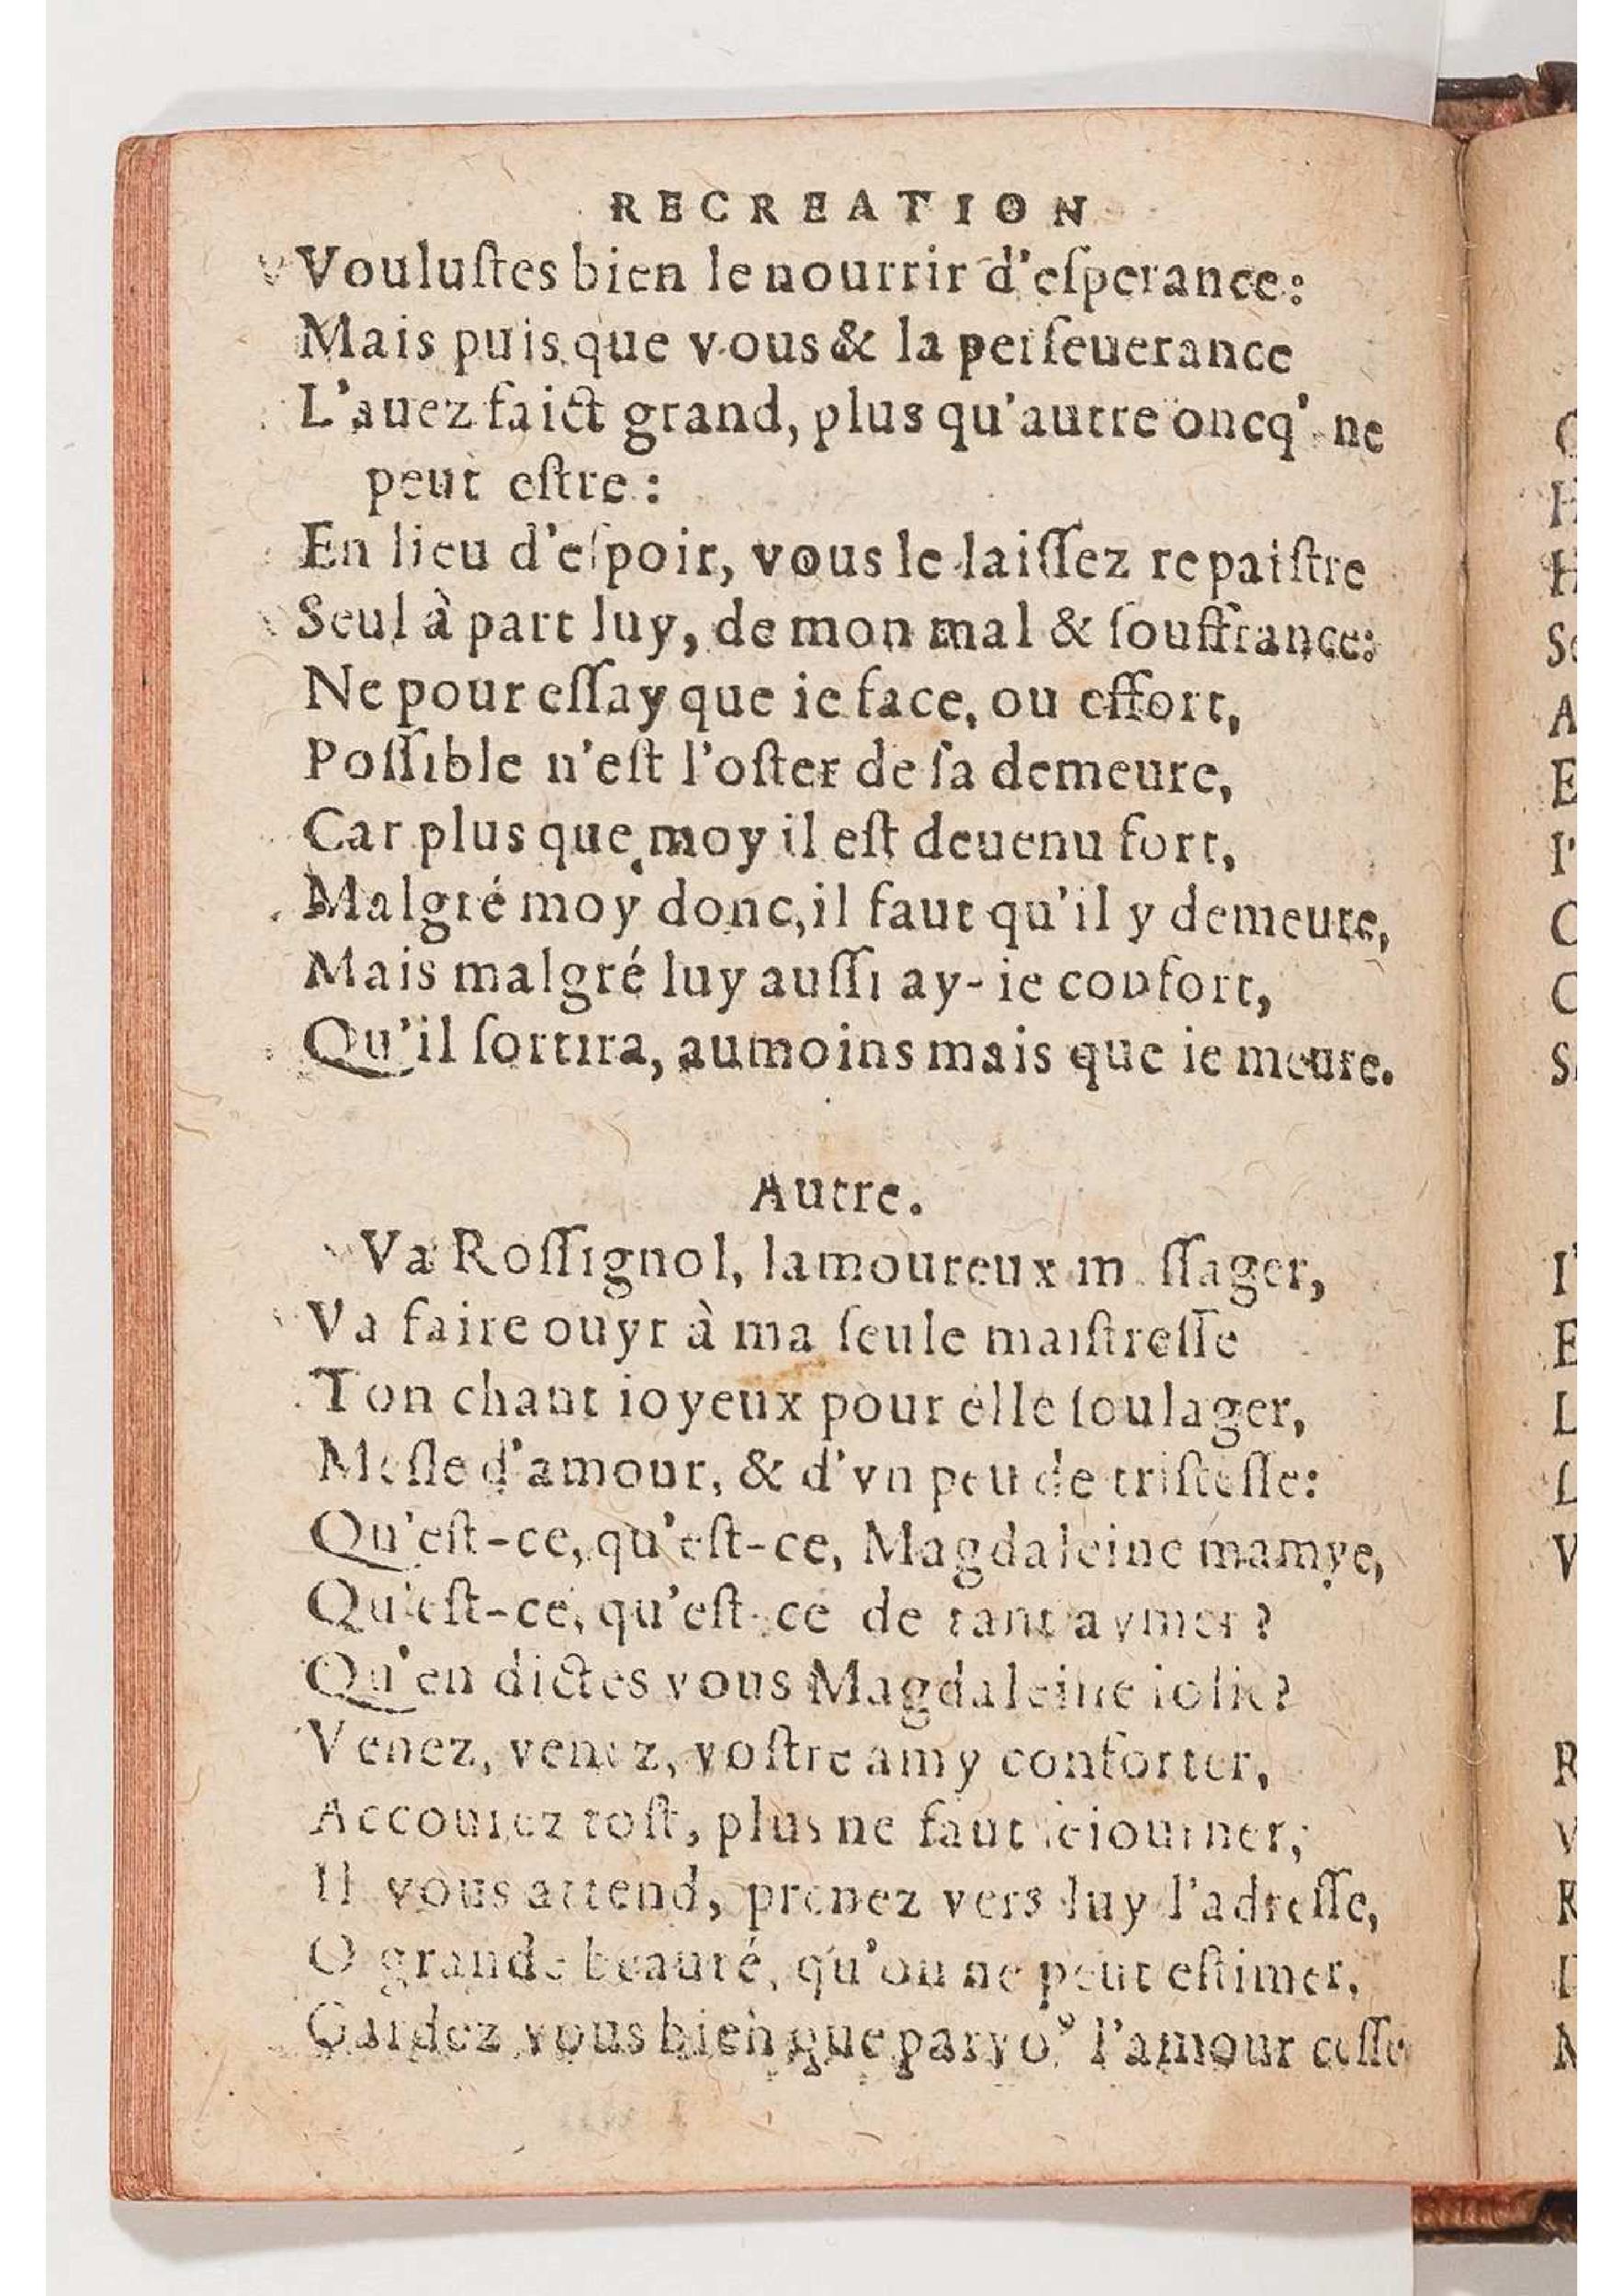 RECREATION
Vouluſtes bien le nourrir d'eſperance:
Mais puis que vous & la perſeuerance
L'auez faict grand, plus qu'autre oncq' ne
peut eſtre:
En lieu d'eſpoir, vous le laiſſez repaiſtre
Seul à part luy, de mon mal & ſouffrance:
Ne pour eſſay que ie face, ou effort,
Poſſible n'eſt l'oſter de ſa demeure,
Car plus que moy il eſt deuenu fort,
Malgré moy donc, il faut qu'il y demeure,
Mais malgré luy auſſi ay-ie confort,
Qu'il ſortira, aumoins mais que ie meure.
Autre.
Va Roſſignol, lamoureux m ſſager,
Va faire ouyr à ma ſeule maiſtreſſe
Ton chant ioyeux pour elle ſoulager,
Meſle d'amour, & d'vn peu de triſteſſe:
Qu'eſt-ce, qu'eſt-ce, Magdaleine mamye,
Qu'eſt-ce, qu'eſt-ce de tant aymer?
Qu'en dictes vous Magdaleine iolie?
Venez, venez, voſtre amy conforter,
Accourez toſt, plus ne faut ſeiourner,
Il vous attend, prenez vers luy l'adreſſe,
O grande beauté, qu'on ne peut eſtimer,
Gardez vous bien que par voꝰ l'amour ceſſe